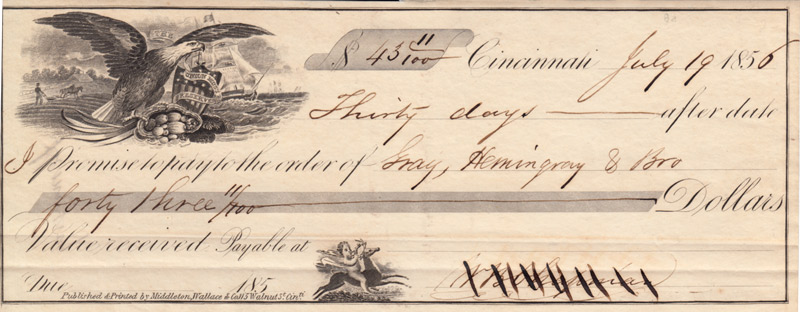 $ 43 11/100 Cincinnati July 19 1856
Thirty days after date
I Promise to pay to the order of Gray, Hemingray & Bro
forty three 11/100 Dollars
Value received Payable at
Due 185
Published & Printed by Middleton, Wallace & Co. 115 Walnut St. Cin.